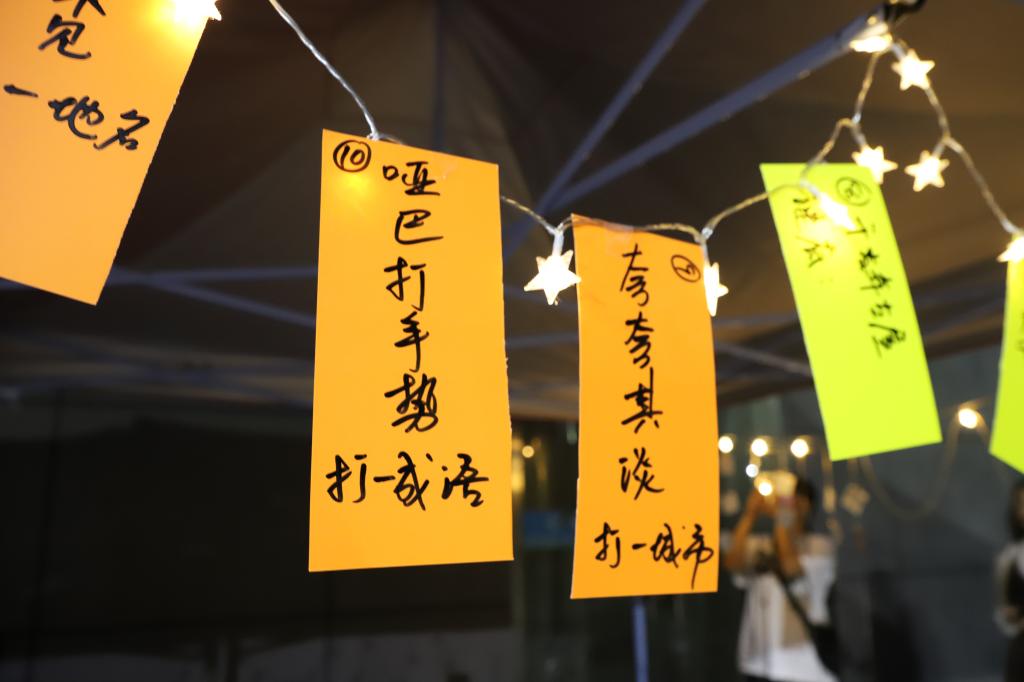 包
一地名
⑩ 哑巴打手势
打一成语
夸夸其谈
打一城市